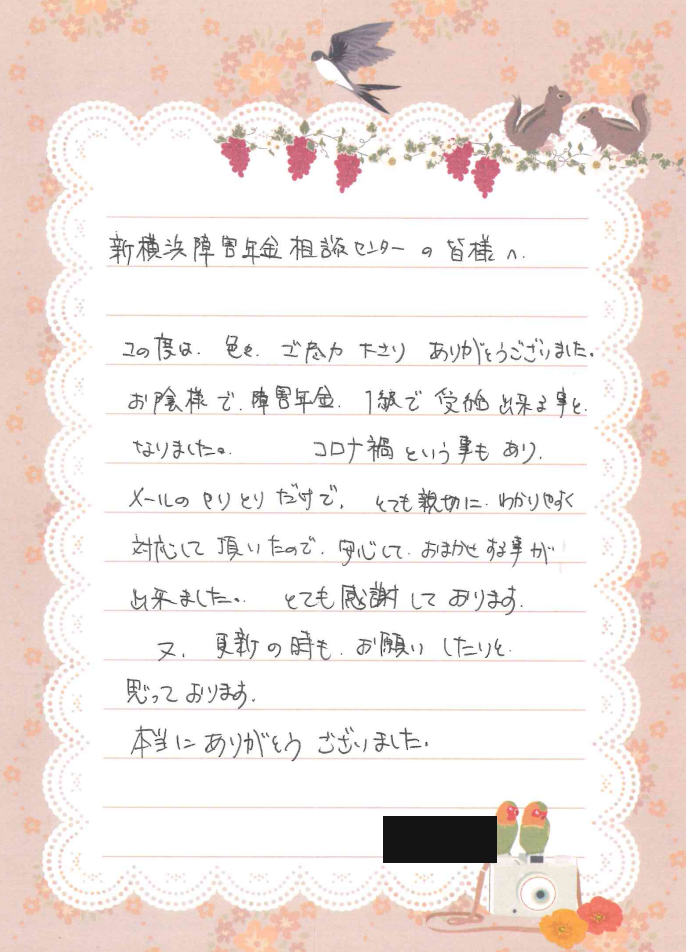 新横浜障害年金相談センターの皆様へ.
この度は、色々、ご尽力下さり ありがとうございました。
お陰様で、障害年金、1級で受給出来る事と、
なりました。 コロナ禍という事もあり、
メールのやりとりだけで、とても親切に、わかりやすく
対応して頂いたので、安心して、おまかせする事が
出来ました。 とても感謝しております。
又、更新の時も、お願いしたいと、
思っております。
本当にありがとうございました。